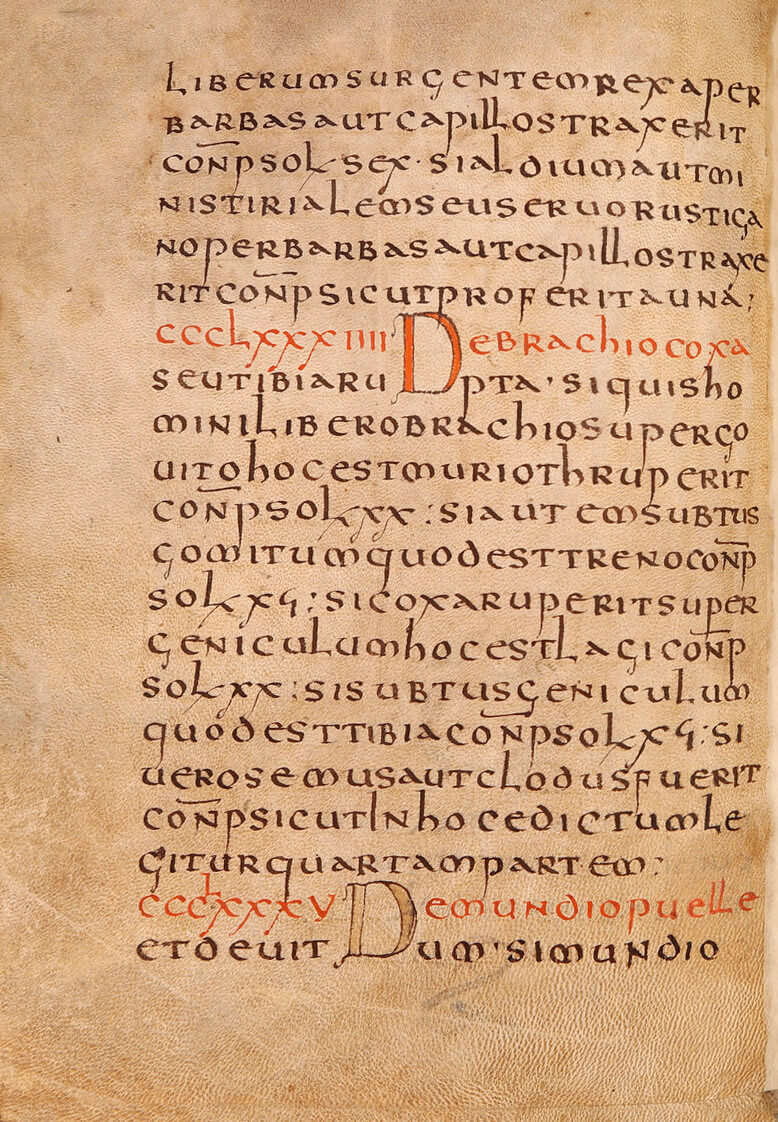 LIBERUMSURGENTEMREXAPER
BARBASAUTCAPILLOSTRAXERIT
CON̄PSOLSEX·SIALDIUMAUTMI
NISTIRIALEMSEUSERUORUSTIGA
NOPERBARBASAUTCAPILLOSTRAXE
RITCON̄PSICUTPROFERITAUNA;
CCCLXXXIIII DEBRACHIOCOXA
SEUTIBIARU DPTA·SIQUISHO
MINILIBEROBRACHIOSUPERGO
UITOHOCESTMURIOTHRUPERIT
CON̄PSOLXX:SIAUTEMSUBTUS
GOMITUMQUODESTTRENOCON̄P
SOLXϛ:SICOXARUPERITSUPER
GENICULUMHOCESTLAGICON̄P
SOLXX:SISUBTUSGENICULUM
QUODESTTIBIACON̄PSOLXϛ:SI
UEROSEMUSAUTCLODUSFUERIT
CON̄PSICUTINHOCEDICTUMLE
GITURQUARTAMPARTEM:
CCCLXXXV DEMUNDIOPUELLE
ETDEUIT DUM·SIMUNDIO